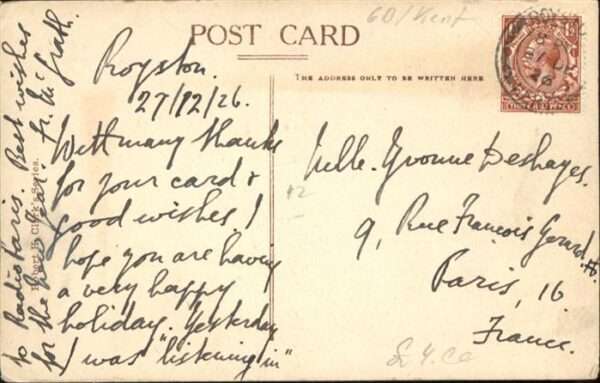 60/Kent
POST CARD
THE ADDRESS ONLY TO BE WRITTEN HERE
Royston.
27/12/26.
With many thanks
for your card &
good wishes. I
hope you are having
a very happy
holiday. Yesterday
I was "listening in"
to Radio Paris. Best wishes
for the New Year. Fr. McGrath.
Clark's Series.
Mlle. Yvonne Deshayes.
9, Rue François Gerard.
Paris, 16
France.